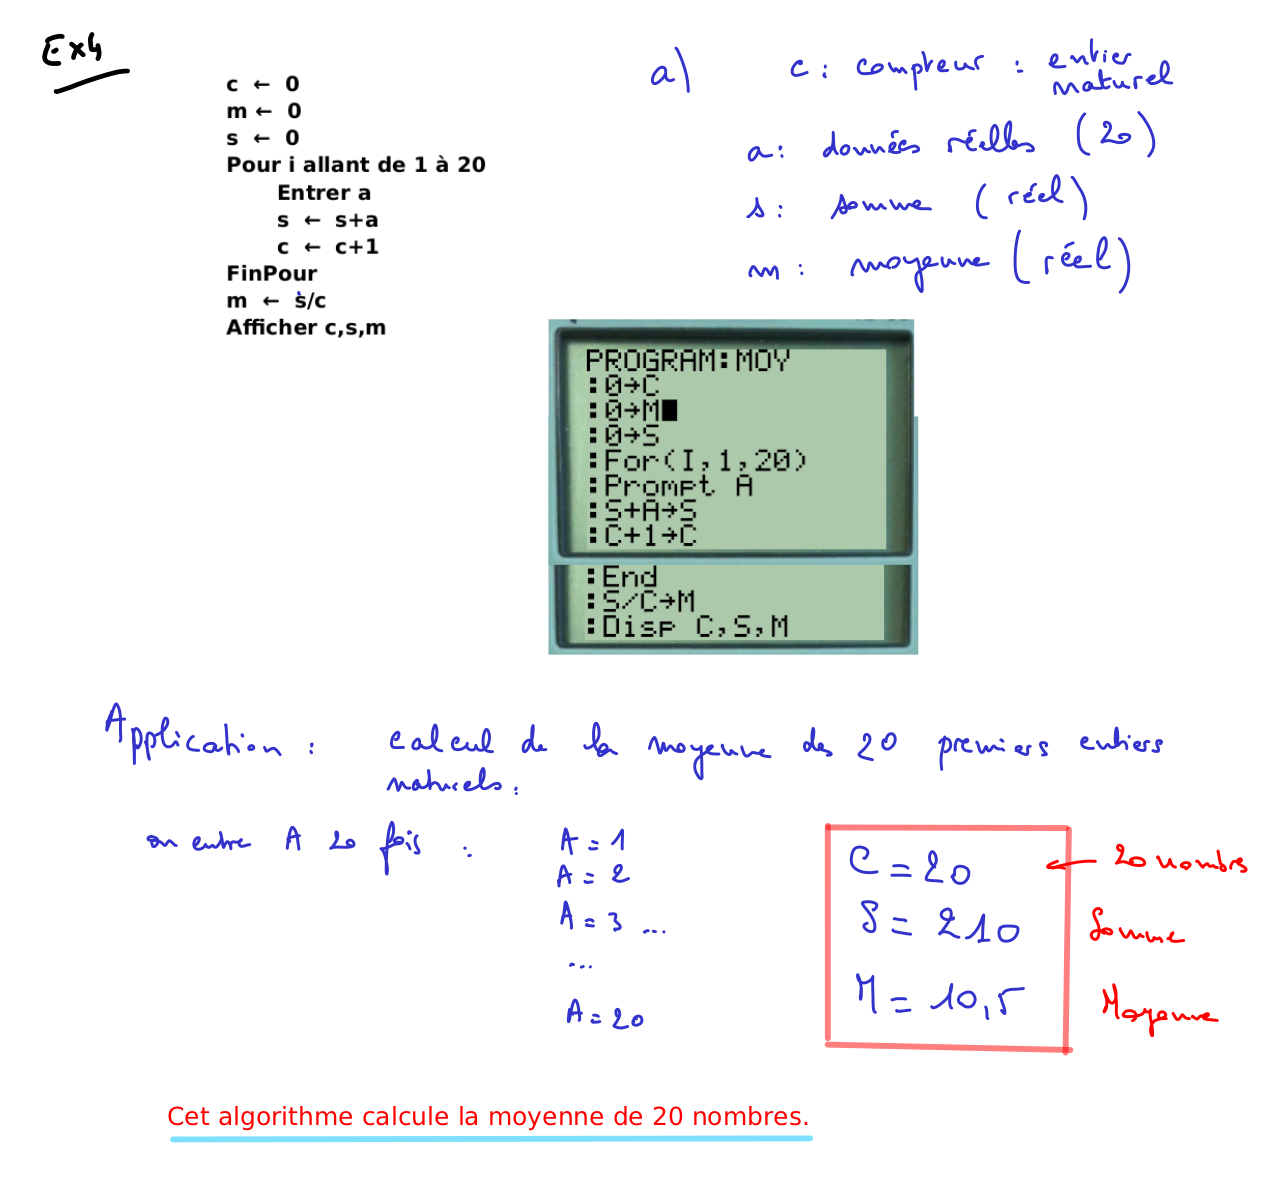 Ex4
c ← 0
m ← 0
s ← 0
Pour i allant de 1 à 20
Entrer a
s ← s+a
c ← c+1
FinPour
m ← s/c
Afficher c,s,m
a) c : compteur : entier naturel
a : données réelles (20)
s : somme (réel)
m : moyenne (réel)
PROGRAM:MOY
:0→C
:0→M
:0→S
:For(I,1,20)
:Prompt A
:S+A→S
:C+1→C
:End
:S/C→M
:Disp C,S,M
Application : calcul de la moyenne des 20 premiers entiers
naturels.
on entre A 20 fois :
A = 1
A = 2
A = 3 ...
...
A = 20
C = 20 ← 20 nombres
S = 210 Somme
M = 10,5 Moyenne
Cet algorithme calcule la moyenne de 20 nombres.